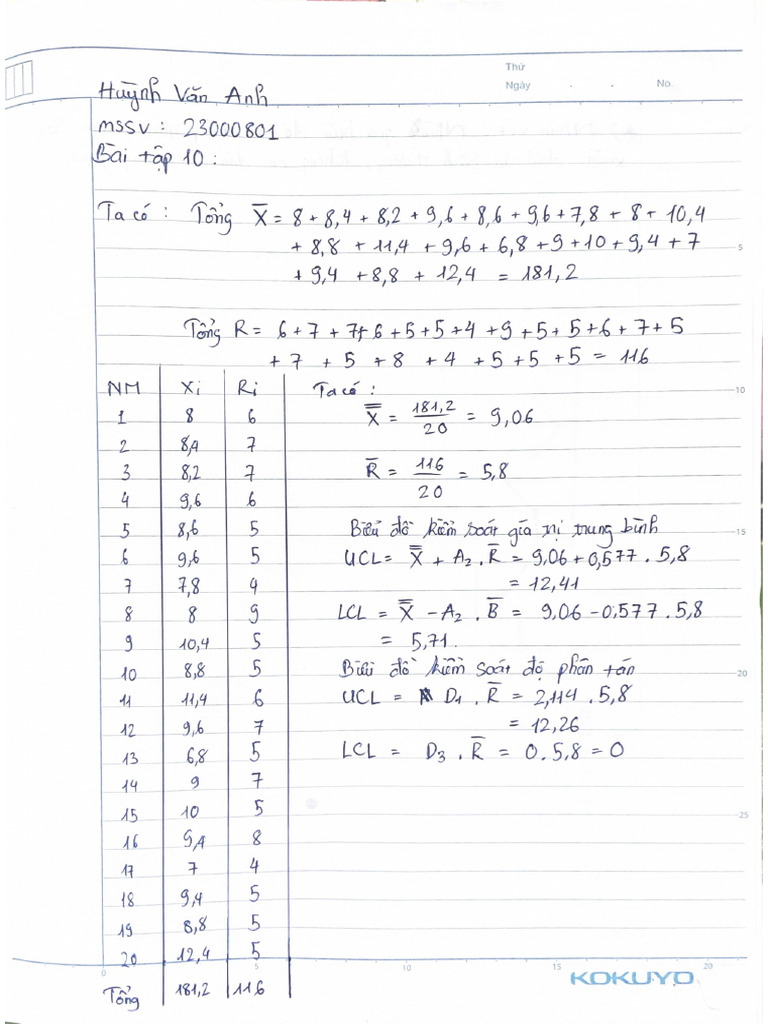 Thứ
Ngày . . No.
Huỳnh Văn Anh
MSSV: 23000801
Bài tập 10:
Ta có: Tổng X̅ = 8 + 8,4 + 8,2 + 9,6 + 8,6 + 9,6 + 7,8 + 8 + 10,4
+ 8,8 + 11,4 + 9,6 + 6,8 + 9 + 10 + 9,4 + 7
+ 9,4 + 8,8 + 12,4 = 181,2
5
Tổng R = 6 + 7 + 7 + 6 + 5 + 5 + 4 + 9 + 5 + 5 + 6 + 7 + 5
+ 7 + 5 + 8 + 4 + 5 + 5 + 5 = 116
NM Xi Ri Ta có:
10
1 8 6 X̿ = 181,2/20 = 9,06
2 8,4 7
3 8,2 7 R̅ = 116/20 = 5,8
4 9,6 6
5 8,6 5 Biểu đồ kiểm soát giá trị trung bình
15
6 9,6 5 UCL = X̿ + A₂ . R̅ = 9,06 + 0,577 . 5,8
7 7,8 4 = 12,41
8 8 9 LCL = X̿ - A₂ . R̅ = 9,06 - 0,577 . 5,8
9 10,4 5 = 5,71.
10 8,8 5 Biểu đồ kiểm soát độ phân tán
20
11 11,4 6 UCL = D₁ . R̅ = 2,114 . 5,8
12 9,6 7 = 12,26
13 6,8 5 LCL = D₃ . R̅ = 0 . 5,8 = 0
14 9 7
15 10 5
25
16 9,4 8
17 7 4
18 9,4 5
19 8,8 5
20 12,4 5
0 5 10 15 20
KOKUYO
Tổng 181,2 116